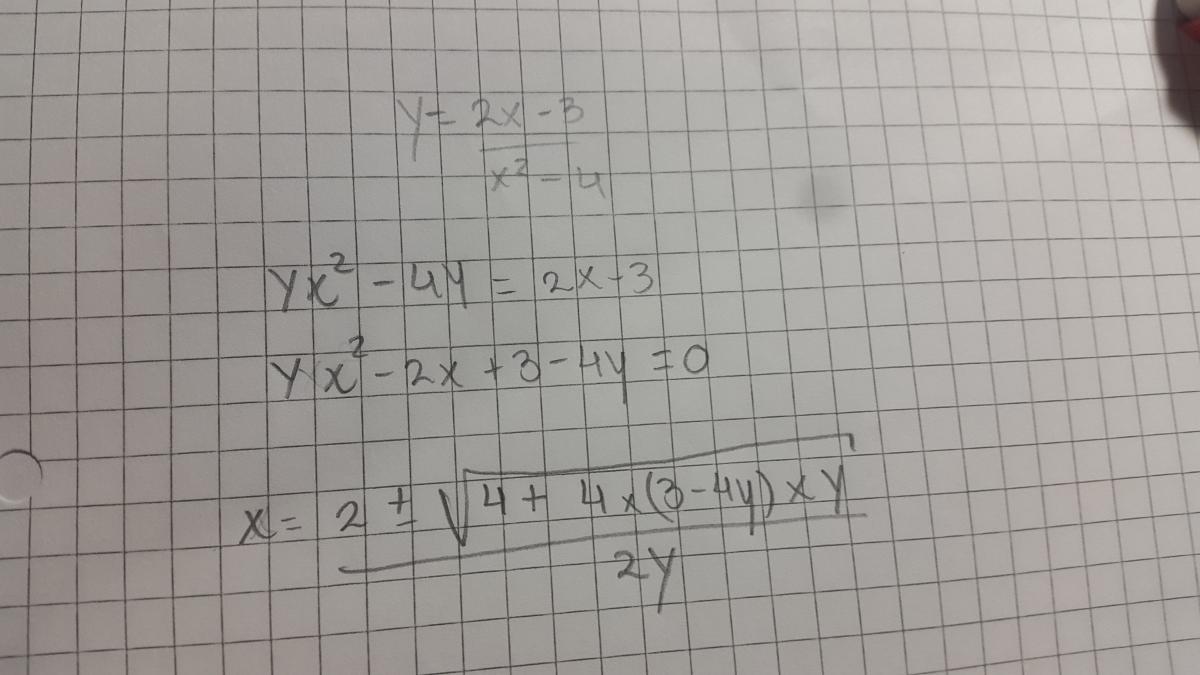 y = 2x - 3
x² - 4
yx² - 4y = 2x - 3
yx² - 2x + 3 - 4y = 0
x = 2 ± √4 + 4x(3 - 4y) x y
2y